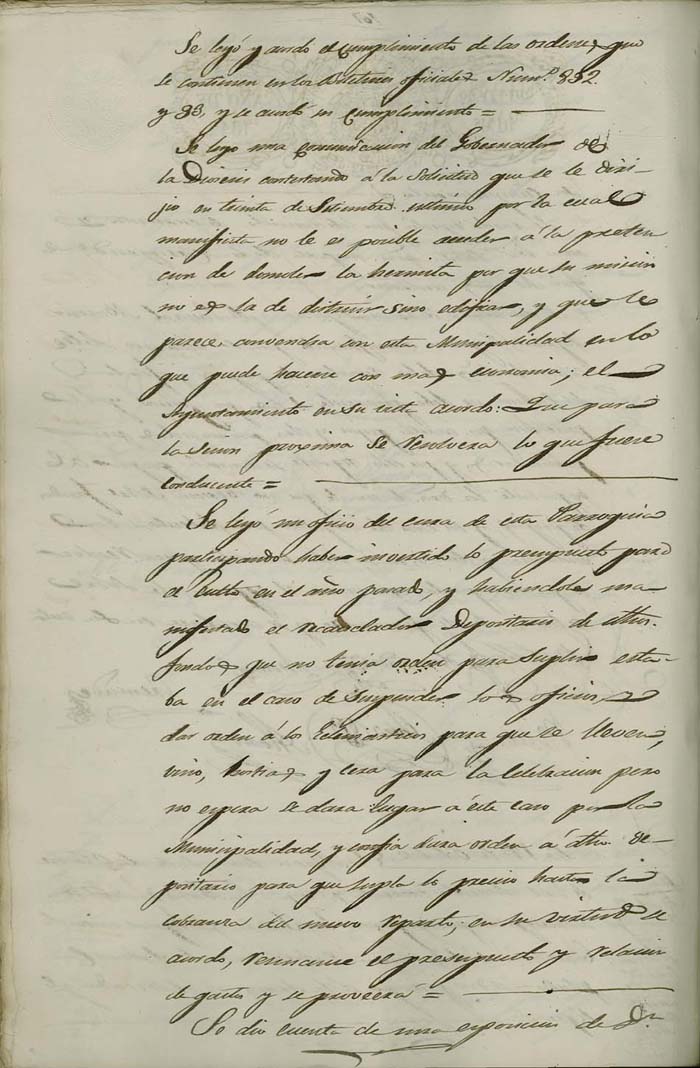 Se leyó y acordo el cumplimiento de las ordenes que
se contienen en los Boletines oficiales Num.s 892
y 93, y se acordó su cumplimiento =
Se leyo una comunicacion del Gobernador de
la Diocesis contestando á la Solicitud que se le diri-
jio en treinta de Setiembre ultimo por la cual
manifiesta no le es posible acceder á la preten-
cion de demoler la hermita por que su mision
no es la de distruir sino edificar, y que le
parece convendra con esta Municipalidad en lo
que puede hacerse con mas economia; el
Ayuntamiento en su vista acordo: Que para
la sesion proxima se resolvera lo que fuere
conducente =
Se leyó un oficio del cura de esta Parroquia
participando haber invertido lo presupuesto para
el Culto en el año pasado, y habiendole ma-
nifestado el recaudador Depositario de dhos.
fondos que no tenia orden para suplir esta-
ba en el caso de suspender los oficios,
dar orden á los Eclesiasticos para que se lleven
vino, hostias y cera para la celebracion pero
no espera se dara lugar á este caso por la
Municipalidad, y confia dara orden á dho. de-
positario para que supla lo preciso hasta la
cobranza del nuevo reparto; en su virtud se
acordo, reunanse el presupuesto y relacion
de gastos y se proveerá =
Se dio cuenta de una exposicion de Dn.